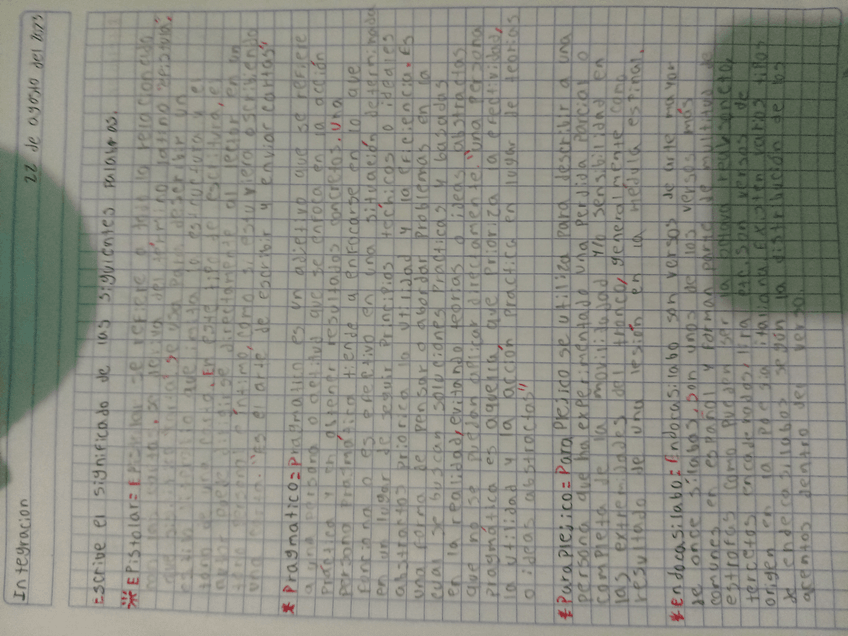 Integración 22 de agosto del 2023
Escribe el significado de las siguientes palabras.
Epistolar= Epistolar se refiere a todo lo relacionado
con las cartas, se deriva del término latino "epistula",
que
estilo
tono de una carta. En este tipo de escritura, el
autor puede dirigirse directamente al lector en un
tono personal o íntimo, como si estuviera escribiendo
una carta. "Es el arte de escribir y enviar cartas"
* Pragmatico= Pragmatico es un adjetivo que se refiere
a una persona o actitud que se enfoca en la acción
práctica y en obtener resultados concretos. Una
persona pragmática tiende a enfocarse en lo que
funciona o es efectivo en una situación determinada
en un lugar de seguir principios teóricos o ideales
abstractos prioriza la utilidad y la eficiencia. Es
una forma de pensar o abordar problemas en la
cual se buscan soluciones prácticas y basadas
en la realidad, evitando teorías o ideas abstractas
que no se puedan aplicar directamente. "una persona
pragmática es aquella que prioriza la efectividad,
la utilidad y la acción práctica en lugar de teorías
o ideas abstractas"
* Paraplejico= Paraplejico se utiliza para describir a una
persona que ha experimentado una perdida parcial o
completa de la movilidad y/o sensibilidad en
las extremidades del tronco, generalmente como
resultado de una lesión en la médula espinal.
* endocasilabo= Endocasilabo son versos de arte mayor
de once silabas, son unos de los versos más
comunes en español y forman parte de multitud de
estrofas como pueden ser la octava real, soneto,
tercetos encadenados, lira etc. son versos de
origen en la poesia italiana. Existen varios tipos
de endecasilabos según la distribución de los
acentos dentro del verso.